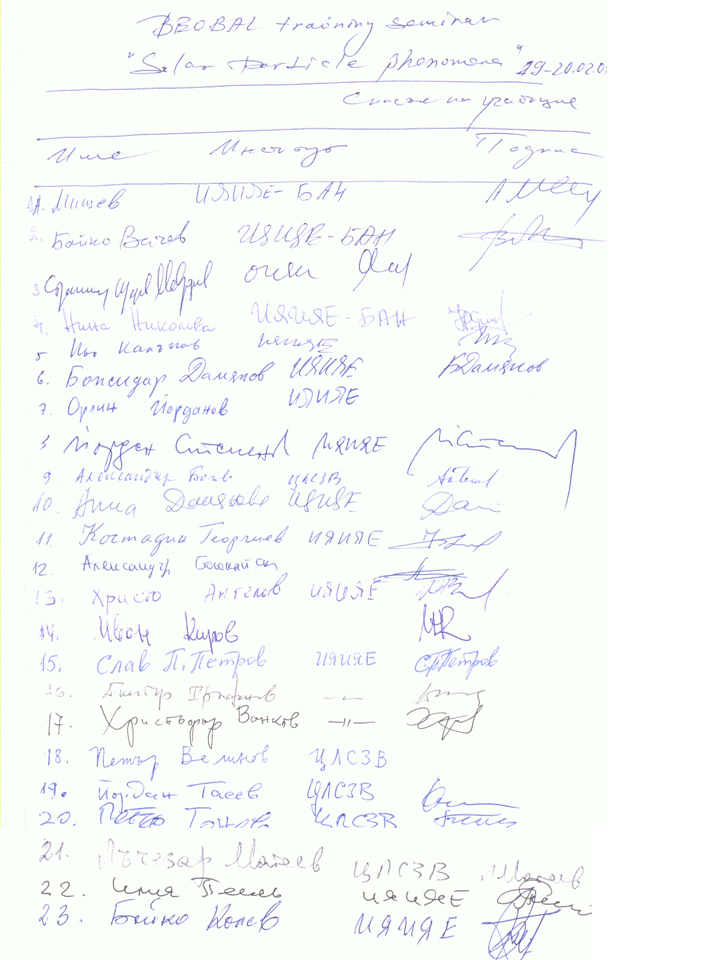 BEOBAL training seminar
"Solar particle phenomena" 19-20.02.0
Списък на участващите
Име Институт Подпис
1. А. Мишев ИЯИЯЕ-БАН
2. Бойко Вачев ИЯИЯЕ-БАН
3
4. Нина Николова ИЯИЯЕ-БАН
5 ИЯИЯЕ
6. Божидар Дамянов ИЯИЯЕ БДамянов
7. Орлин Йорданов ИЯИЯЕ
8 Йордан Стаменов ИЯИЯЕ
9. Александър ЦЛСЗВ
10. Анна Дамянова ИЯИЯЕ
11. Костадин Георгиев ИЯИЯЕ
12. Александър
13. Христо Ангелов ИЯИЯЕ
14. Иван Киров
15. Слав П. Петров ИЯИЯЕ СППетров
16. Димитър -"-
17. Христофор Ванков -"-
18. Петър Велинов ЦЛСЗВ
19. Йордан Тасев ЦЛСЗВ
20. Петко ЦЛСЗВ
21. Лъчезар Матеев ЦЛСЗВ Матеев
22. Илия ИЯИЯЕ
23. Бойко Колев ИЯИЯЕ